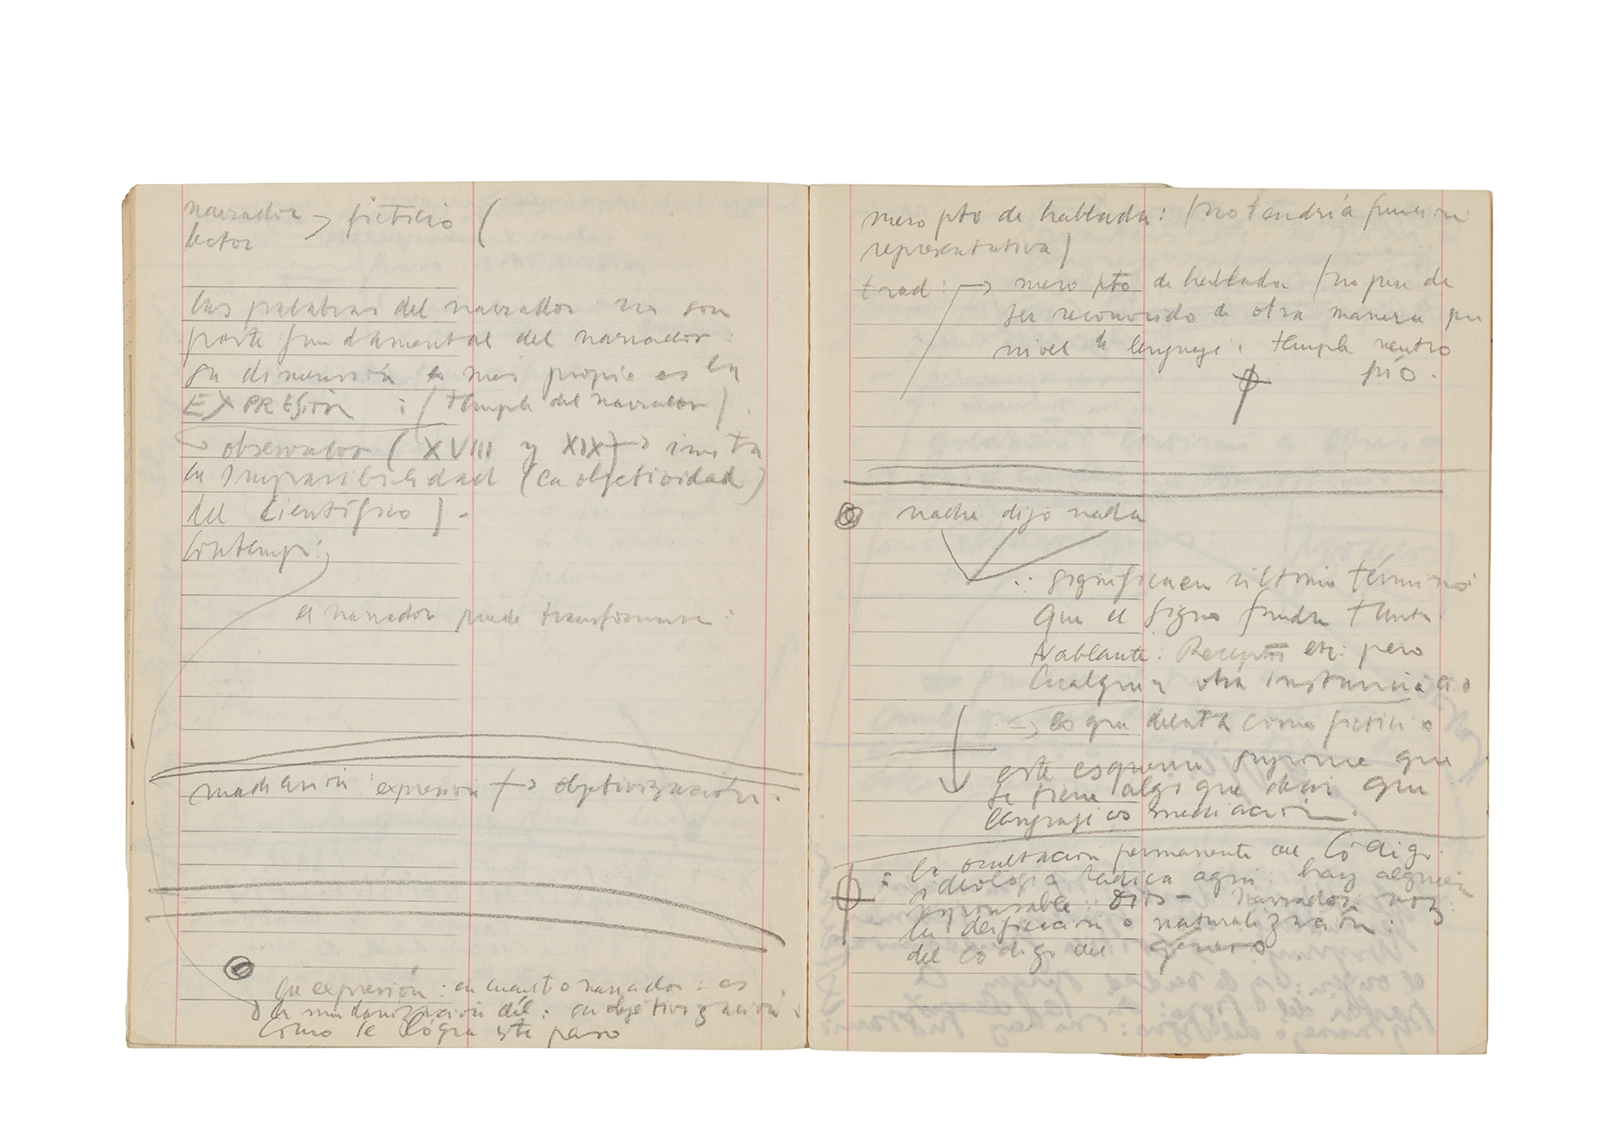 narrador → ficticio (
lector
las palabras del narrador no son
parte fundamental del narrador:
su dimensión mas propia es la
EXPRESIÓN : (temple del narrador).
→ observador (XVIII y XIX) → imita
la impasibilidad (la objetividad)
del científico ). -
Contemp:
el narrador puede transformarse:
mediación expresión → objetivización.
la expresión: en cuanto narrador: es
la mundanización del: su objetivización:
como se logra este paso
mero pto de hablada: (no tendría función
representativa)
trad: → mero pto de hablada (no puede
ser reconocido de otra manera que
nivel de lenguaje: temple neutro
pío.
nadie dijo nada
∴ significa en último término
que el signo funda tanto
hablante: Receptor etc: pero
cualquier otra instancia
→ lo que delata como ficticio
este esquema supone que
se tiene algo que decir que
lenguaje es mediación.
: la ocultación permanente del código.
ideología radica aquí: hay alguien
responsable: Dios - narrador: voz
la deificación o naturalización:
del código del género